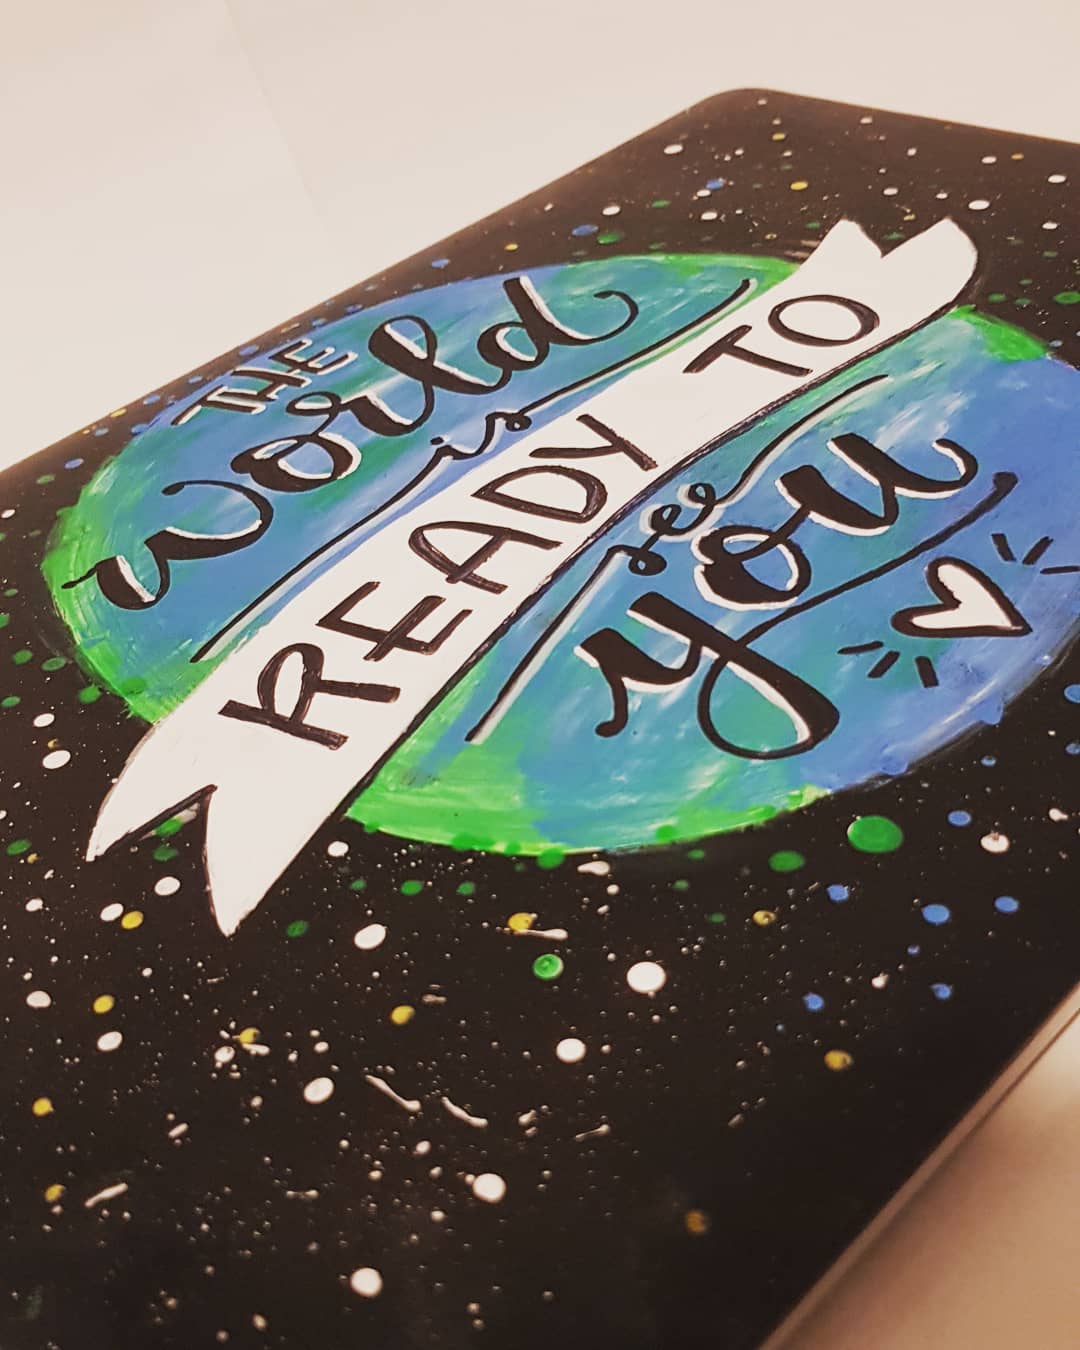 THE
world
is
READY TO
see
you